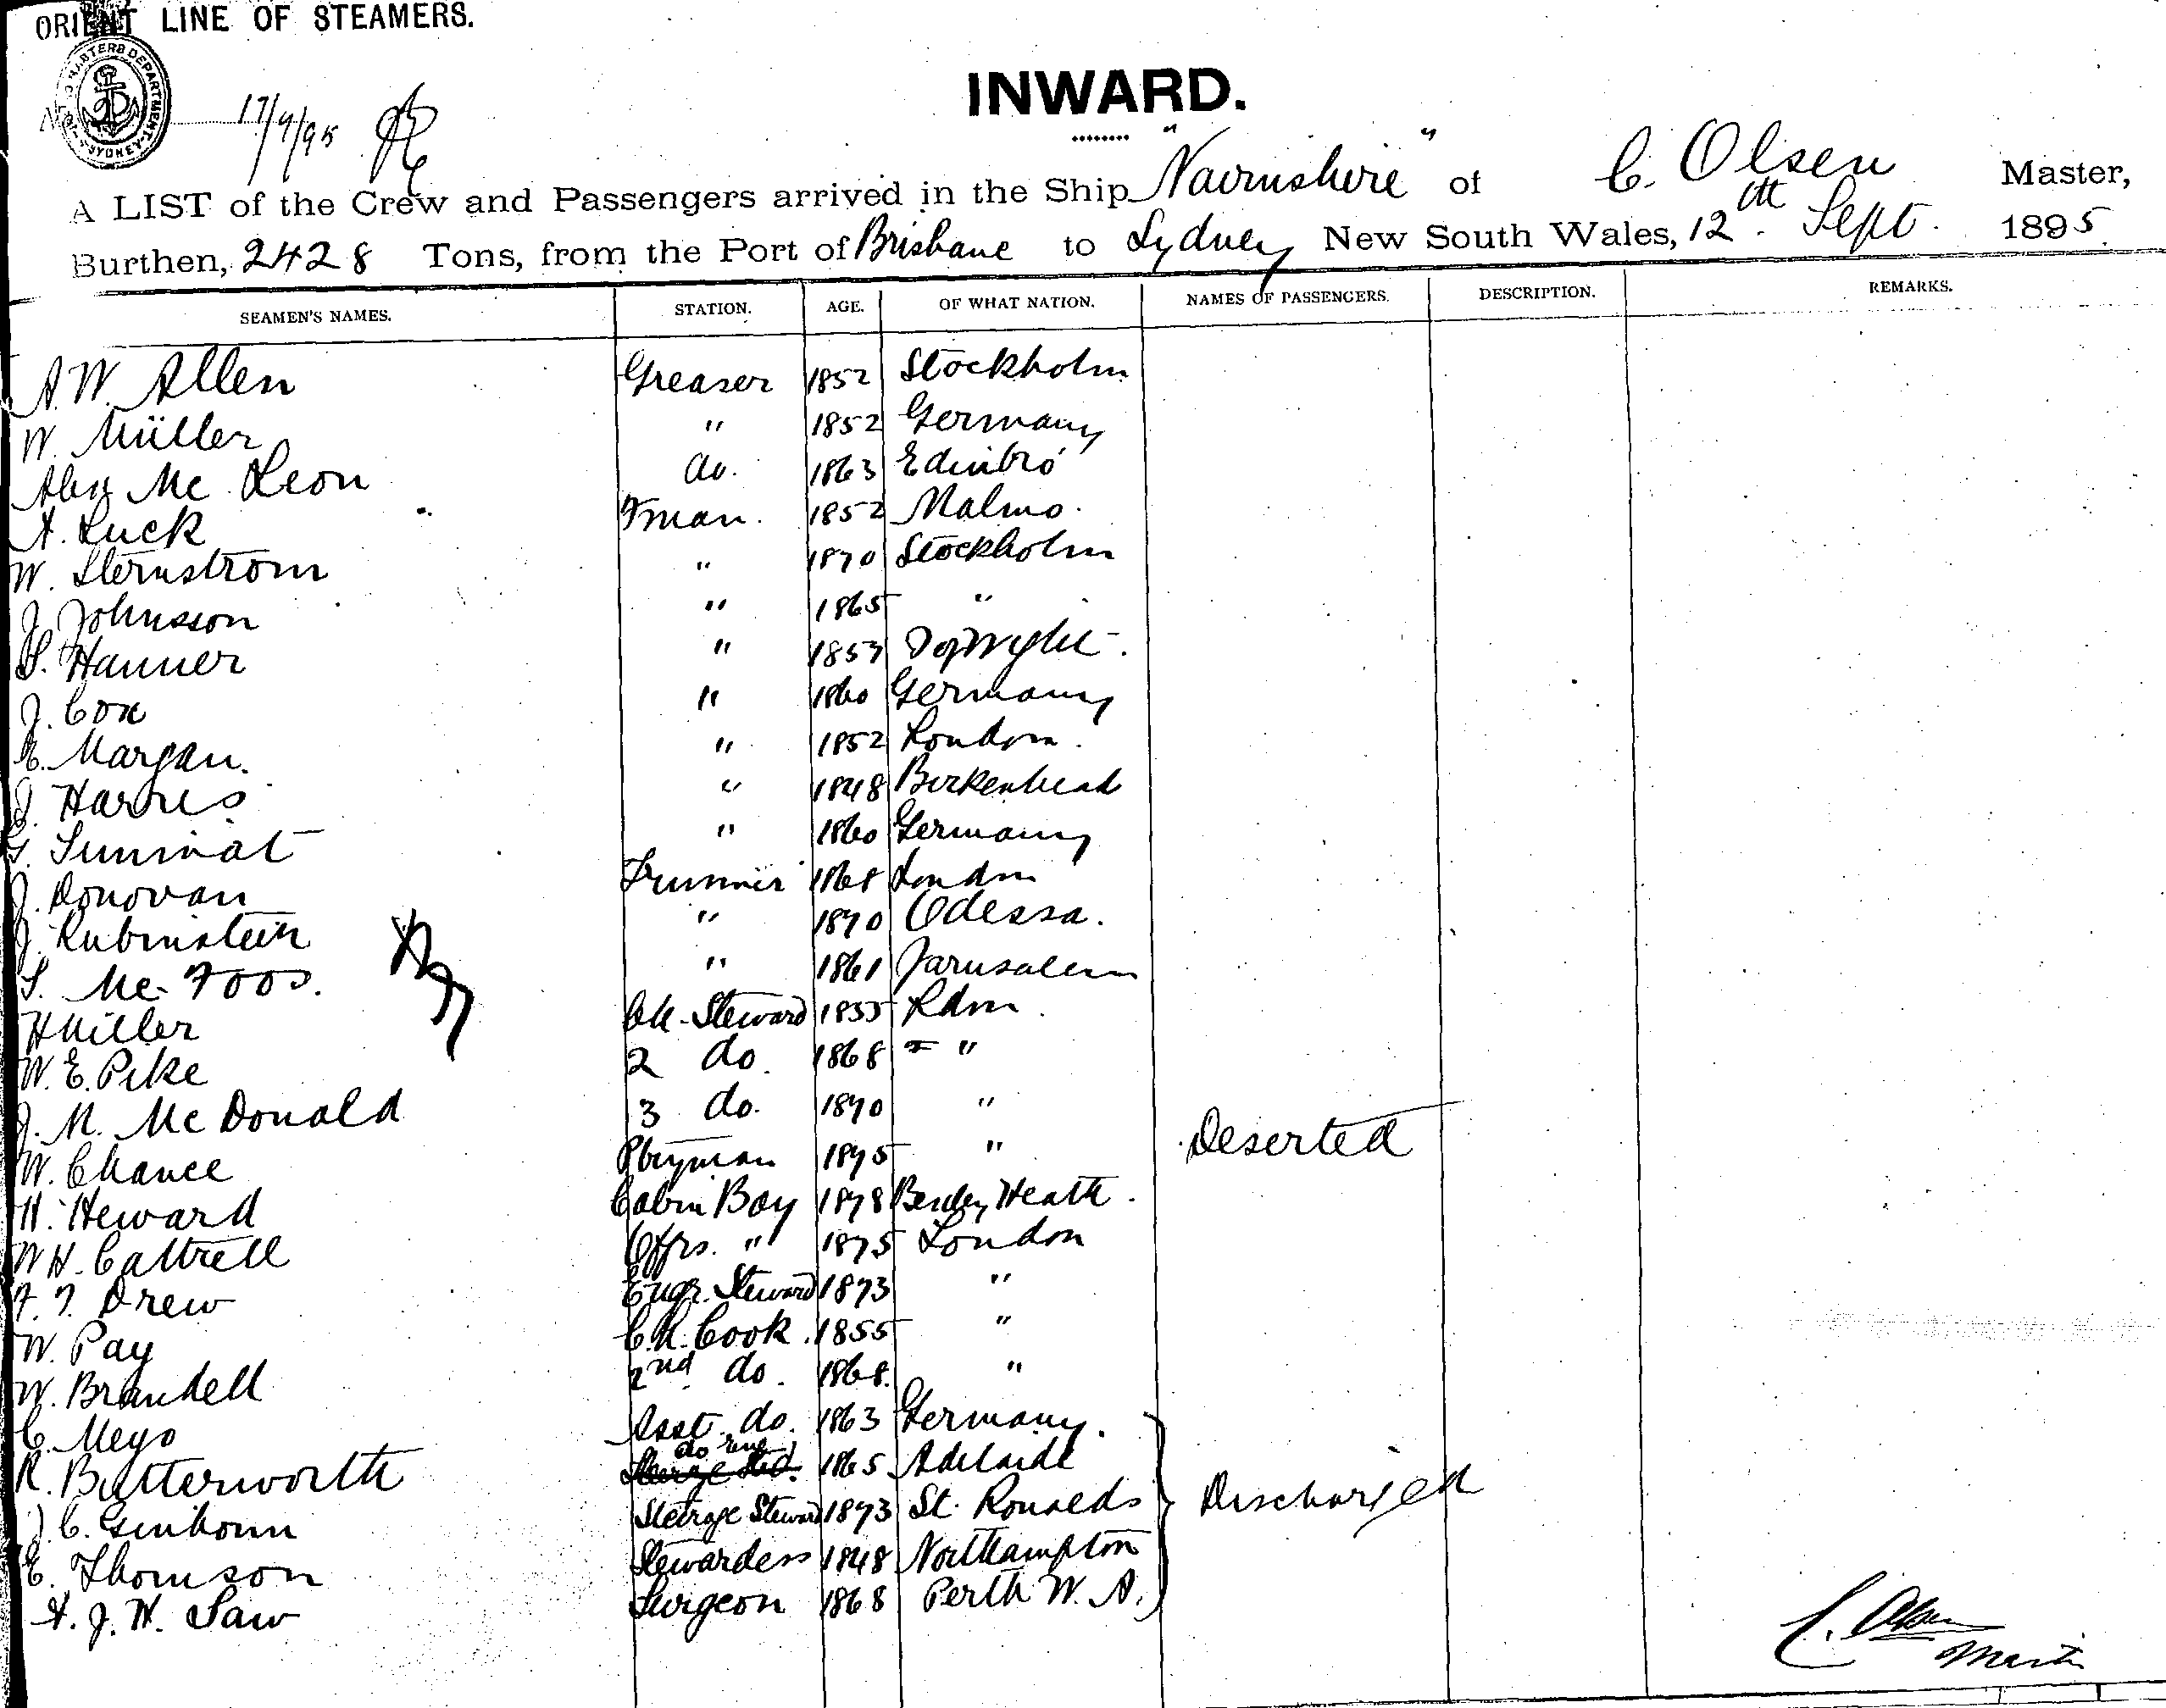 ORIENT LINE OF STEAMERS.
MASTERS DEPARTMENT SYDNEY
17/9/95
INWARD.
A LIST of the Crew and Passengers arrived in the Ship "Nairnshire" of C. Olsen Master,
Burthen, 2428 Tons, from the Port of Brisbane to Sydney New South Wales, 12th Sept. 1895
SEAMEN'S NAMES. STATION. AGE. OF WHAT NATION. NAMES OF PASSENGERS. DESCRIPTION. REMARKS.
A. W. Allen Greaser 1852 Stockholm
W. Müller " 1852 Germany
Alex Mc Leon do. 1863 Edinbro'
A. Luck Fman. 1852 Malmo.
W. Sternstrom " 1870 Stockholm
J. Johnsson " 1865 "
S. Hanner " 1857
J. Cox " 1860 Germany
E. Margan. " 1852 London.
J. Harris " 1848 Birkenhead
Sunirat " 1860 Germany
J. Donovan Trimmer 1868 London
J. Rubinstein " 1870 Odessa.
S. Mc Foos. " 1861 Jarusalem
H Miller Ch. Steward 1855 Ldm.
W. E. Pike 2 do. 1868 "
J. M. Mc Donald 3 do. 1870 "
W. Chance Ptryman 1875 " Deserted
H. Heward Cabin Boy 1878 Bexley Heath.
W H. Cattrell Offrs. " 1875 London
F. T. Drew Engr. Steward 1873 "
W. Pay Ch. Cook. 1855 "
W. Brandell 2nd do. 1868. "
C. Meyo Asst. do. 1863 Germany.
R. Butterworth do 1865 Adelaide
J C. Steerage Steward 1873 St. Ronalds Discharged
E. Thomson Stewardess 1848 Northampton
A. J. H. Saw Surgeon 1868 Perth W. A.
C. Olsen
Master